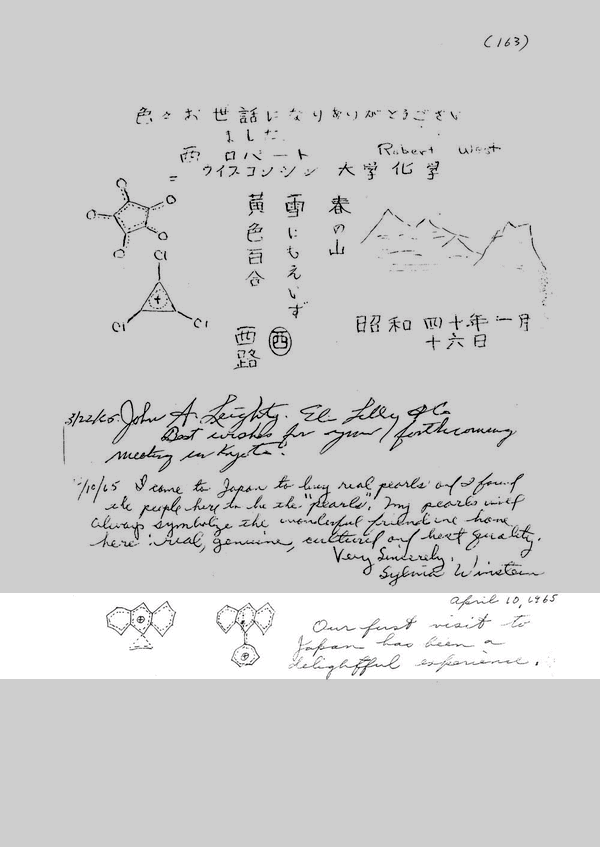 (163)
色々お世話になりありがとうござい
ました
西 ロバート Robert West
ウイスコンシン 大学 化学
春の山
雪にもえいず
黄色百合
西路
西
O
O
O
O
O
Cl
Cl
Cl
+
昭和四十年一月
十六日
3/22/65 John A. Leighty. Eli Lilly & Co
Best wishes for your forthcoming
meeting in Kyoto!
/10/65 I came to Japan to buy real pearls and I found
the people here to be the "pearls". My pearls will
always symbolize the wonderful friends we have
here: real, genuine, cultured and best quality.
Very Sincerely,
Sylvia Winstein
April 10, 1965
Our first visit to
Japan has been a
delightful experience.
+
+